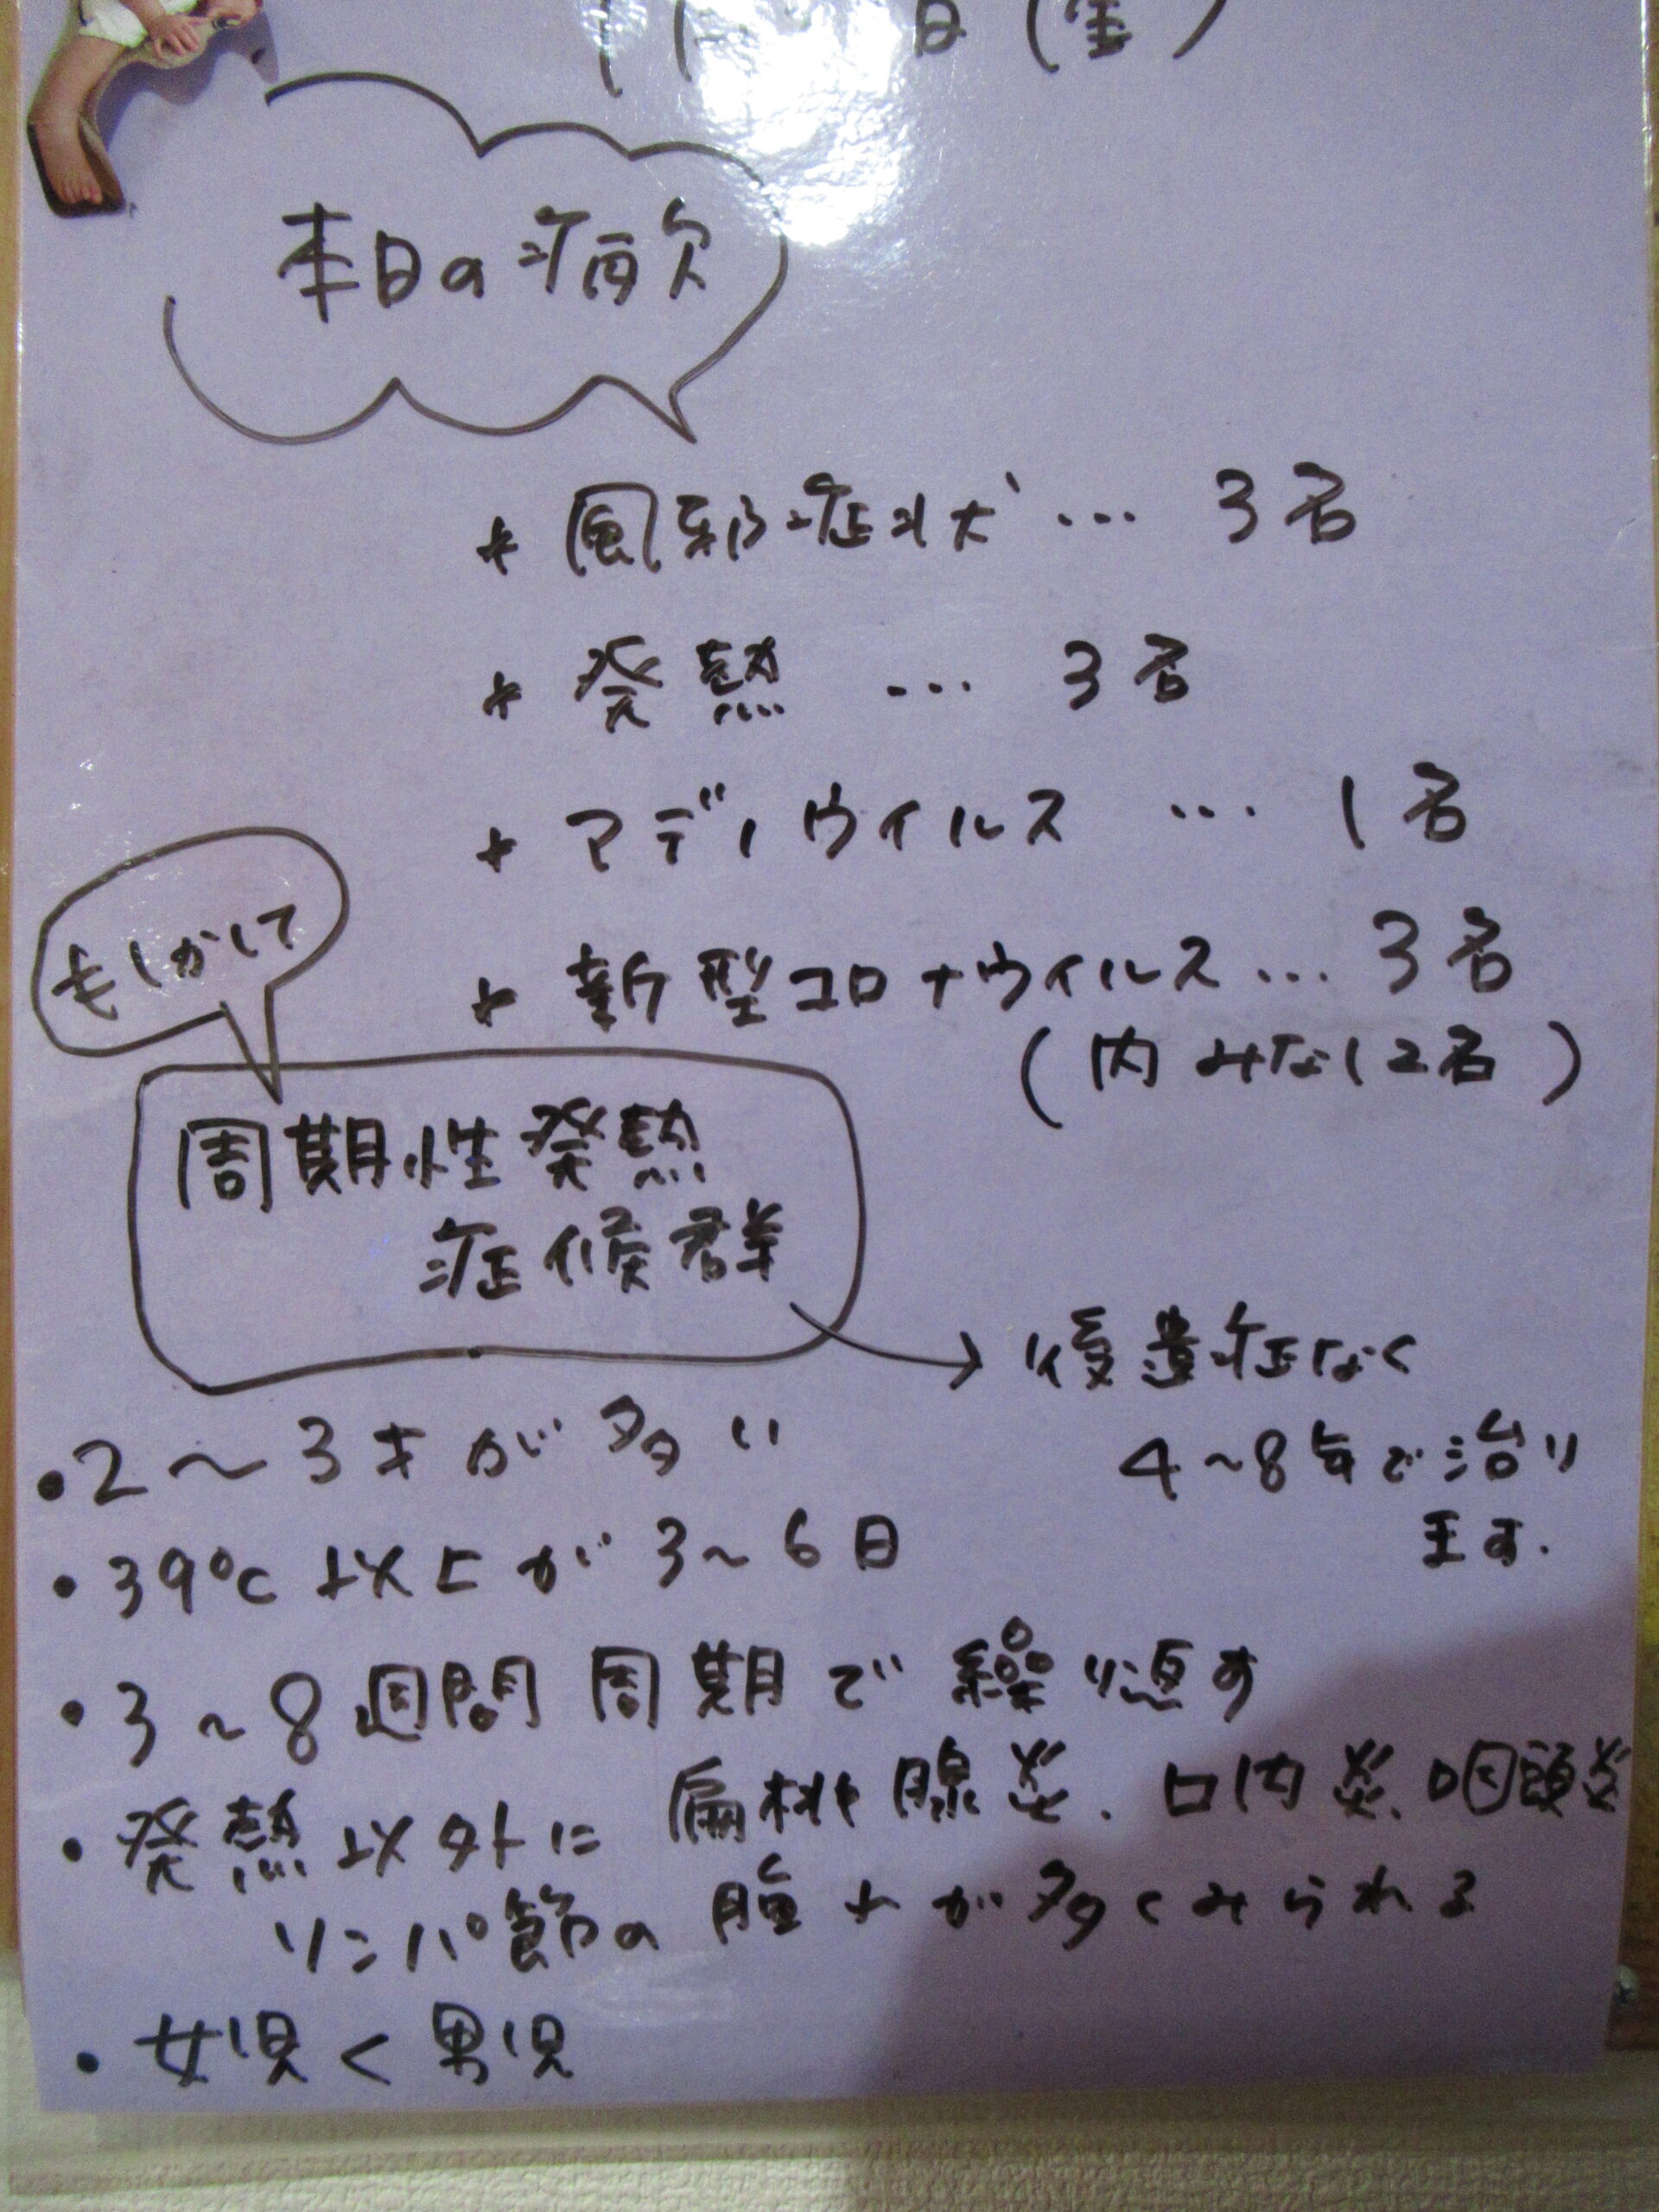 日(金)
本日の病欠
* 風邪症状 … 3名
* 発熱 … 3名
* アデノウイルス … 1名
* 新型コロナウイルス … 3名
(内 みなし2名)
もしかして
周期性発熱
症候群
→ 後遺症なく
4~8年で治り
ます.
・2~3才が多い
・39℃以上が3~6日
・3~8週間周期で繰り返す
・発熱以外に 扁桃腺炎、口内炎、咽頭炎
リンパ節の腫れが多くみられる
・女児<男児